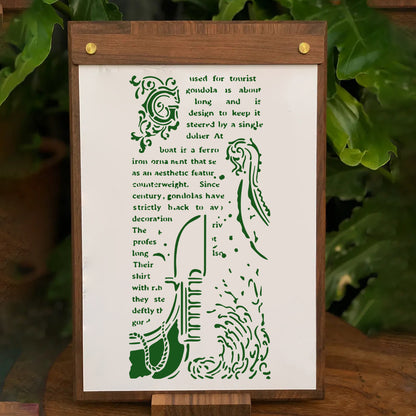 G used for tourist
gondola is about
long and is
design to keep it
steered by a single
At
boat is a ferro
iron ornament that se
as an aesthetic featur
counterweight. Since
century, gondolas have
strictly black to avo
decoration
The riv
profes t
long lso
Their
shirt
with rib
they ste
deftly th
gon